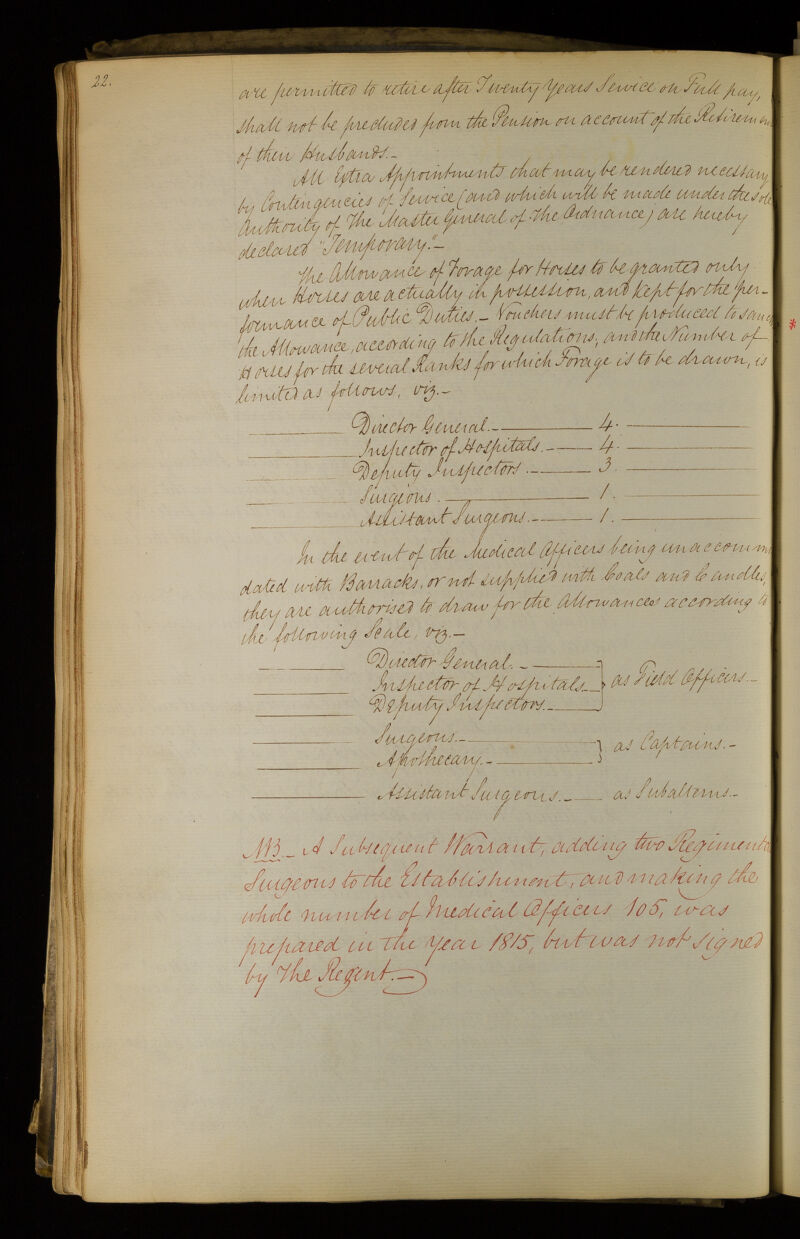 22.
are permitted to retire after Twenty Years Service on Full pay,
shall not be precluded from the Pension on account of the Retiremen
of their Husbands.-
All Extra Appointments that may be rendered necessary
by Contingencies of Service (and which will be made under the sole
Authority of The Master General of The Ordnance) are hereby
declared "Temporary."-
The Allowance of Forage for Horses to be granted only
when Horses are actually in possession, and kept for the per-
formance of Public Duties.- Vouchers must be produced to sanc
the Allowance, according to the Regulations, and the Number of
Horses for the several Ranks for which Forage is to be drawn, is
limited as follows, viz.-
Director General. 4.
Inspector of Hospitals. 4.
Deputy Inspectors. 3.
Surgeons. 1.
Assistant Surgeons. 1.
In the event of the Medical Officers being unaccomm
dated with Barracks, or not supplied with Coals and Candles,
they are authorised to draw for the Allowances according to
the following Scale, viz.-
Director General.
Inspector of Hospitals. } as Field Officers.-
Deputy Inspectors.
Surgeons.-
Apothecary.- } as Captains.-
Assistant Surgeons. as Subalterns.-
NB - A Subsequent Warrant, adding two Regimental
Surgeons to the Establishment, and making the
whole number of Medical Officers 105, was
prepared in the Year 1815, but was not signed
by The Regent.-
*